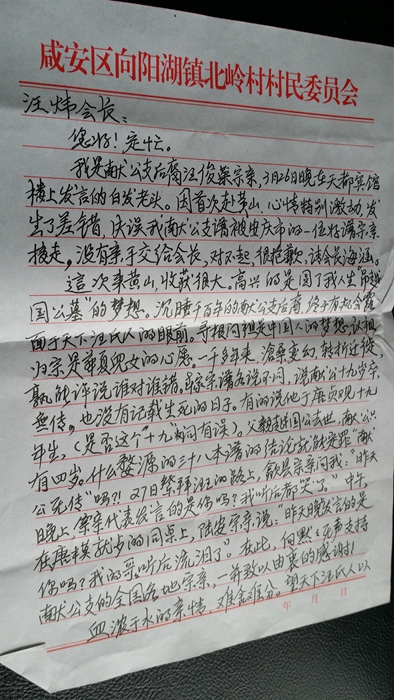 咸安区向阳湖镇北岭村村民委员会
汪炜会长:
您好!定忙。
我是献公支后裔汪俊梁宗亲,3月26日晚在天都宾馆
楼上发言的白发老头。因首次赴黄山,心情特别激动,发
生了差错,供误我献公支谱被安庆市的一位好谱宗亲
接走,没有亲手交给会长,对不起,很抱歉,请会长海涵。
這次来黄山,收获很大。高兴的是圆了我人生"吊越
国公墓"的梦想。沉睡千百年的献公支后裔,终于有机会露
面于天下汪氏人的眼前。寻根问祖是中国人的梦想,认祖
归宗是华夏儿女的心愿。一千多年来,沧桑变幻,转折迁徙,
孰能评说谁对谁错。宗亲谱各说不同,说献公十九岁卒
無传,也没有记载生死的日子。有的说他于唐贞观十九
年生,(是否这个"十九"词有误)。父親越国公去世,献公只
有四岁。什么婺源的三十八本谱的结论就能委罪"献
公死传"吗?!27日祭拜汪王的路上,歙县宗亲问我:"昨天
晚上,宗亲代表发言的是你吗?我听后都哭了。"中午,
在唐模就步的同桌上,陆安宗亲说:"昨天晚发言的是
你吗?我的哥听后流泪了"。在此,向默默无声支持
献公支的全国各地宗亲,一并致以由衷的感谢!
血浓于水的亲情,难舍难分。望天下汪氏人以
年 月 日